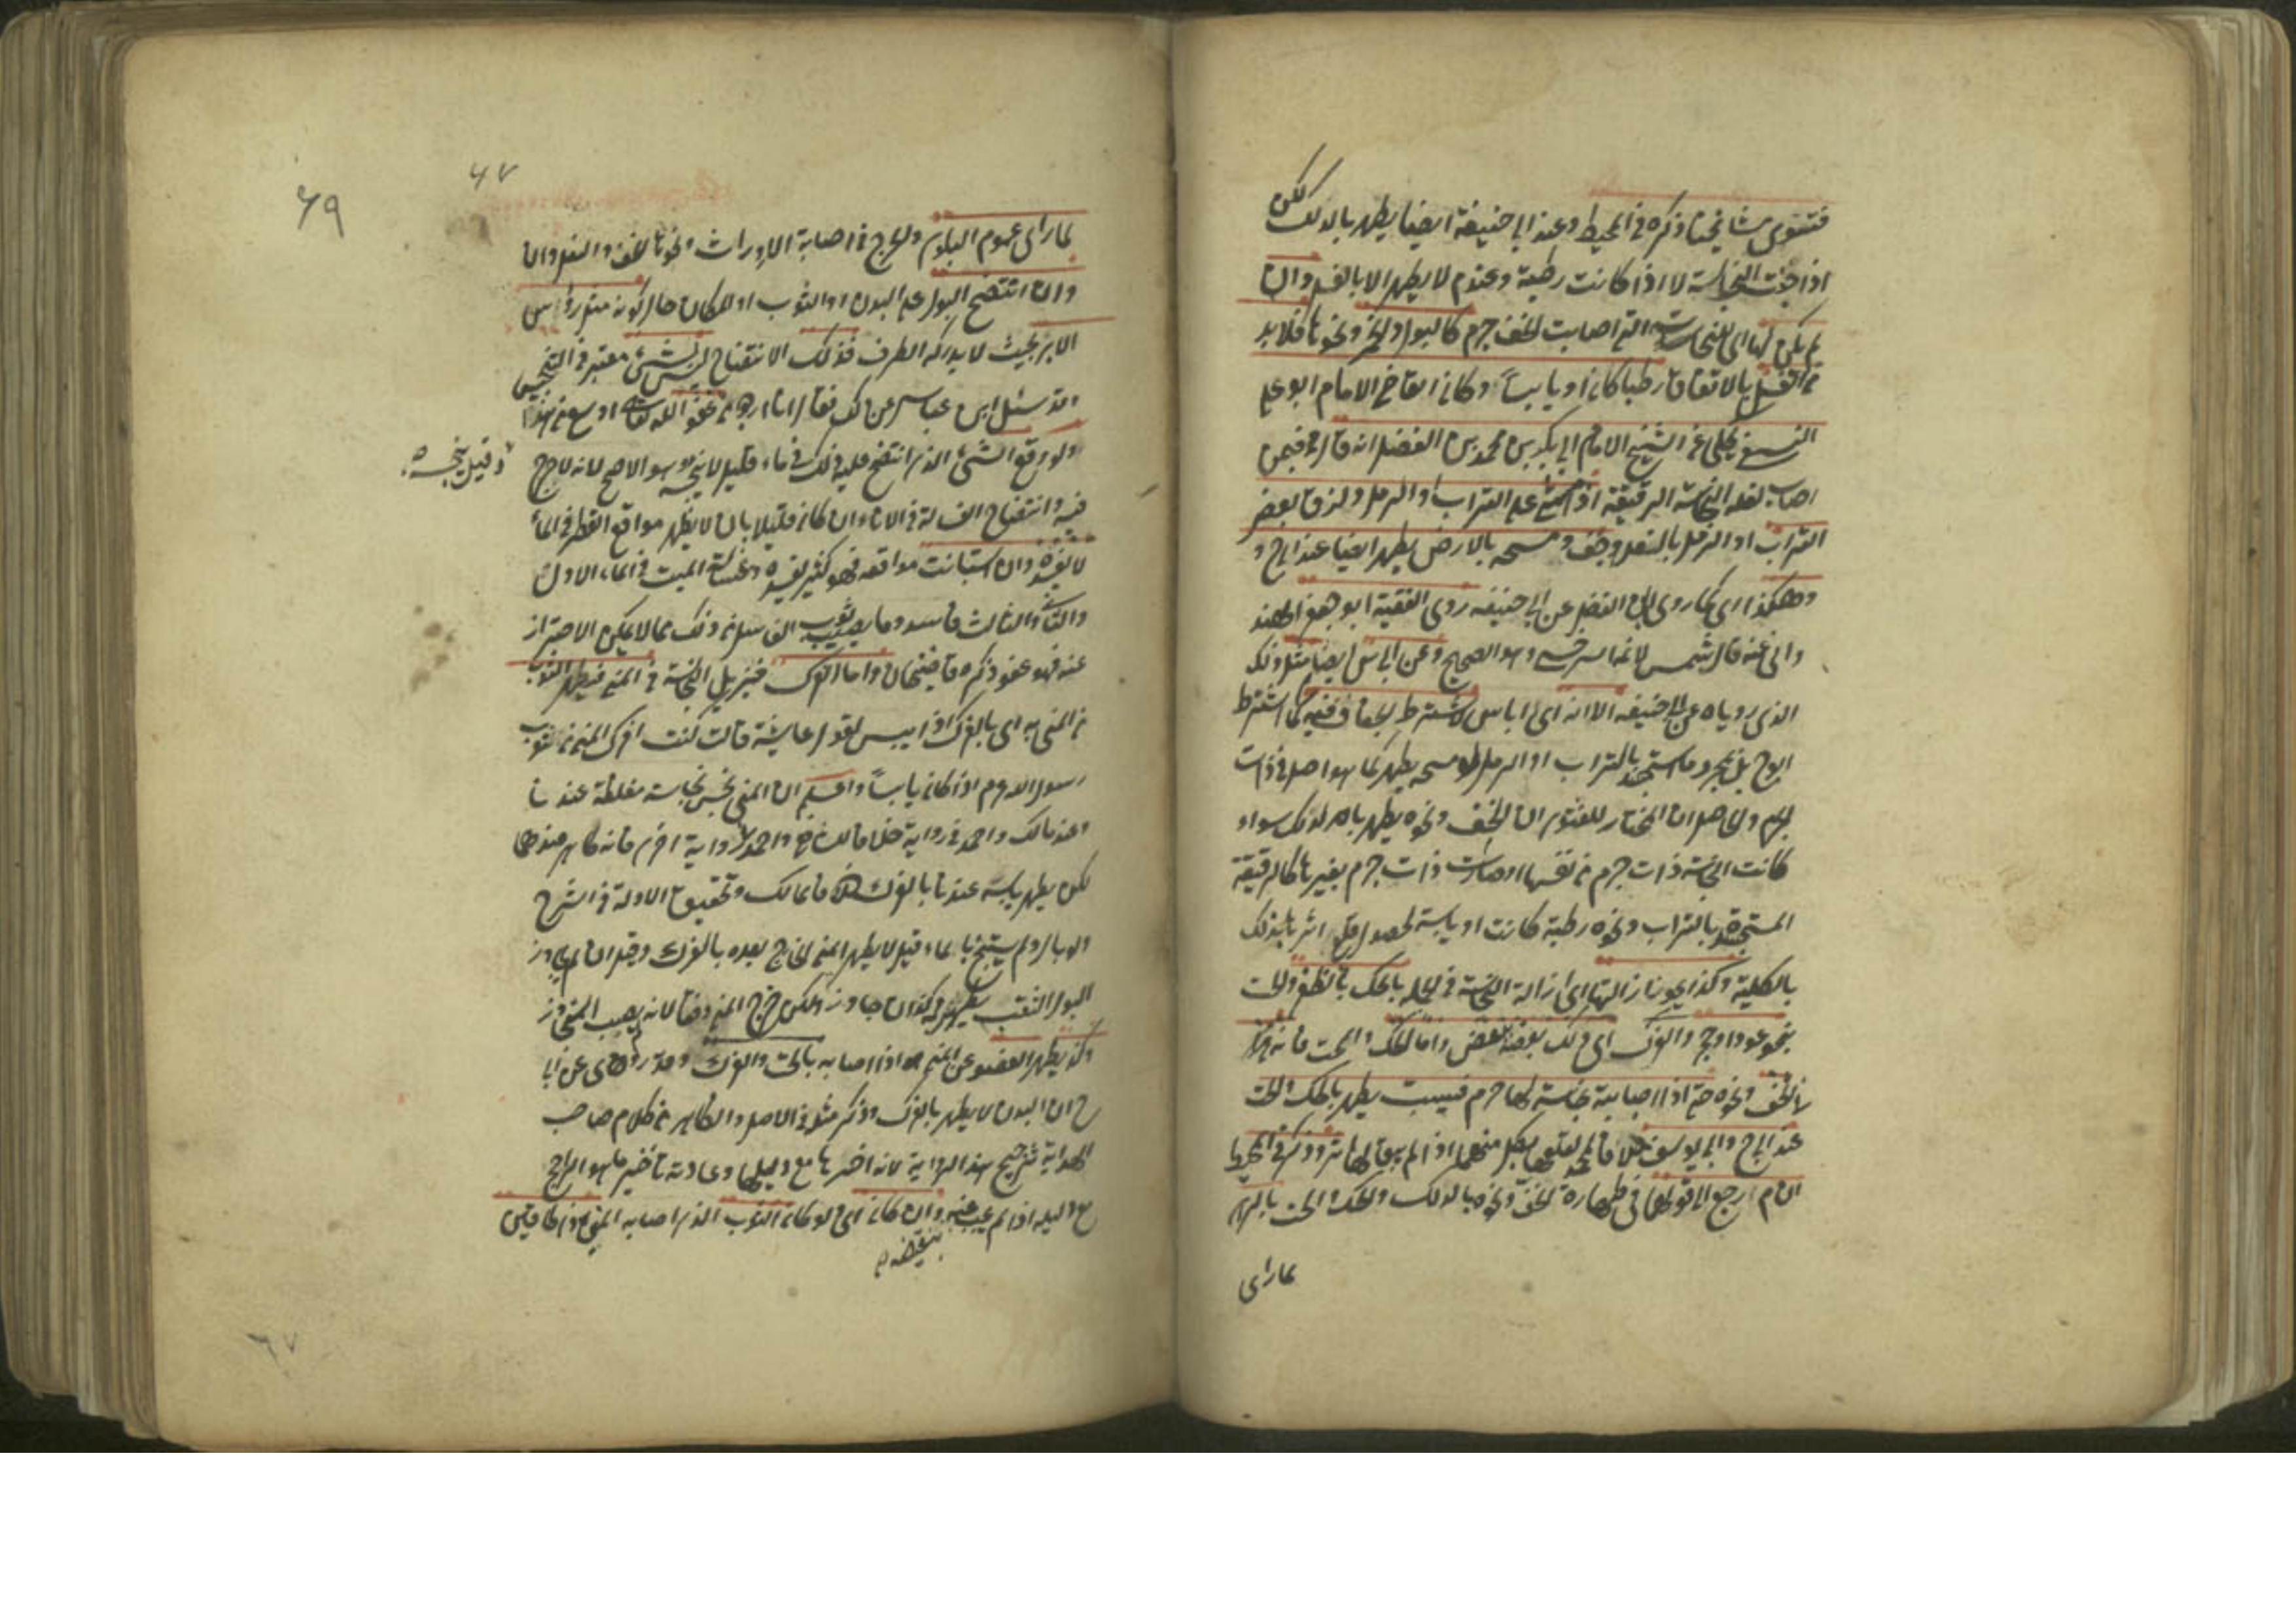 فتوى مشايخنا ذكره في المحيط وعند ابي حنيفة ايضا يطهر بالدلك لكن
اذا جفت النجاسة لا اذا كانت رطبة وعندم لا يطهر الا بالغسل وان
لم يكن لها اى للنجاسة التي اصابت الخف جرم كالبول والخمر ونحوها فلا بد
من الغسل بالاتفاق رطبا كان او يابساً وكان القاضي الامام ابو علي
النسفي يحكي عن الشيخ الامام ابي بكر بن محمد بن الفضل انه قال فيمن
اصاب نعله النجاسة الرقيقة اذا مشى على التراب او الرمل ولزق بعض
التراب او الرمل بالنعل وجف ومسحه بالارض يطهر ايضا عند ابي ح
وهكذا اى كما روى ابن الفضل عن ابي حنيفه روى الفقيه ابو جعفر الهند
واني عنه قال شمس الائمة السرخسي وهو الصحيح وعن ابي س ايضا مثل ذلك
الذى روياه عن ابي حنيفه الا انه اى ابا س لا يشترط الجفاف فيه كما اشترط
ابو ح بل بمجرد ما استجسد بالتراب او الرمل لو مسحه يطهر كما هو اصل في ذات
الجرم والحاصل ان المختار للفتوى ان الخف ونحوه يطهر بالدلك سواء
كانت النجاسة ذات جرم من نفسها او صارت ذات جرم بغيرها كالرقيقة
المستجسدة بالتراب ونحوه رطبة كانت او يابسة لحصول قلع اثرها بذلك
بالكلية وكذا يجوز ازالتها اى ازالة النجاسة في الجملة بالحك بالظفر والحت
بنحو عود او حجر والفرك اى دلك بعضه ببعض واما الحك والحت فانه
في الخف ونحوه حتى اذا اصابته نجاسة لها جرم فيبست يطهر بالحك والحت
عند ابي ح وابي يوسف خلافا لمحمد بكل منهما اذا لم يبق لها اثر وذكر في المحيط
ان م رجع الى قولهما في طهارة الخف ونحوه بالدلك والحك والحت بالرى
لما راى
٦٧
٦٩
لما راى عموم البلوى والحرج في اصابة الاوراث ونحوها الخف والنعل وان
وان انتضح البول على البدن او الثوب او المكان حال كونه مثل رؤس
الابر بحيث لا يدركه الطرف فذلك الانتضاح ليس بشئ معتبر في التنجيس
وقد سئل ابن عباس عن ذلك فقال انا نرجو من عفو الله تعالى اوسع من هذا
ولو وقع الشئ الذى انتضح عليه ذلك في ماء قليل لا ينجسه وهو الاصح لانه لا حرج
وقيل ينجسه
فيه وانتضاح الغسالة في الاناء ان كان قليلا بان لا يظهر مواقع القطر في الماء
لا يفسده وان استبانت مواقعه فهو كثير يفسده وغسالة الميت في الماء الاول
والثاني والثالث فاسد وما يصيب ثوب الغاسل من ذلك مما لا يمكن الاحتراز
عنه فهو عفو ذكره قاضيخان واما الفرك فيزيل النجاسة في المني فيطهر الثوب
من المني به اى بالفرك اذا يبس لقول عايشة قالت كنت افرك المني من ثوب
رسول الله صم اذا كان يابساً واعلم ان المني نجس نجاسة مغلظة عندنا
وعند مالك واحمد في رواية خلافا للشافعي واحمد في رواية اخرى فانه طاهر عندهما
لكن يطهر يابسه عندنا بالفرك خلافا لمالك وتحقيق الادلة في الشرح
ولو بال ولم يستنج بالماء قيل لا يطهر المني الخارج بعده بالفرك وقيل ان لم يجاوز
البول الثقب يطهر به وكذا ان جاوز ولكن خرج المني دفقا لانه
وكذا يطهر العضو عن المني اذا اصابه بالحت والفرك وقد روى عن ابي
ح ان البدن لا يطهر بالفرك وذكر مثله في الاصل والظاهر من كلام صاحب
الهداية ترجيح هذه الرواية لانه اخرها مع دليلها وعادته تاخير ما هو الراجح
مع دليله اذا لم يجب عنه وان كان اى ولو كان الثوب الذى اصابه المني ذا طاقين
بنقضه
٦٧